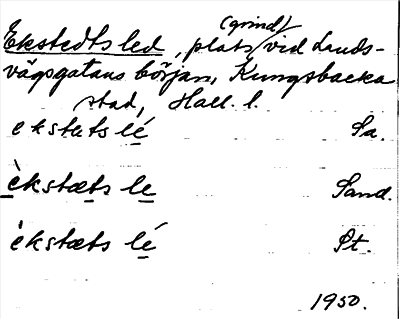 (grind)
Ekstedts led, plats vid Lands-
vägsgatans början, Kungsbacka
stad, Hall. l.
ekstæts lé Sa.
èkstæts le Sand.
èkstæts lé St.
1950.